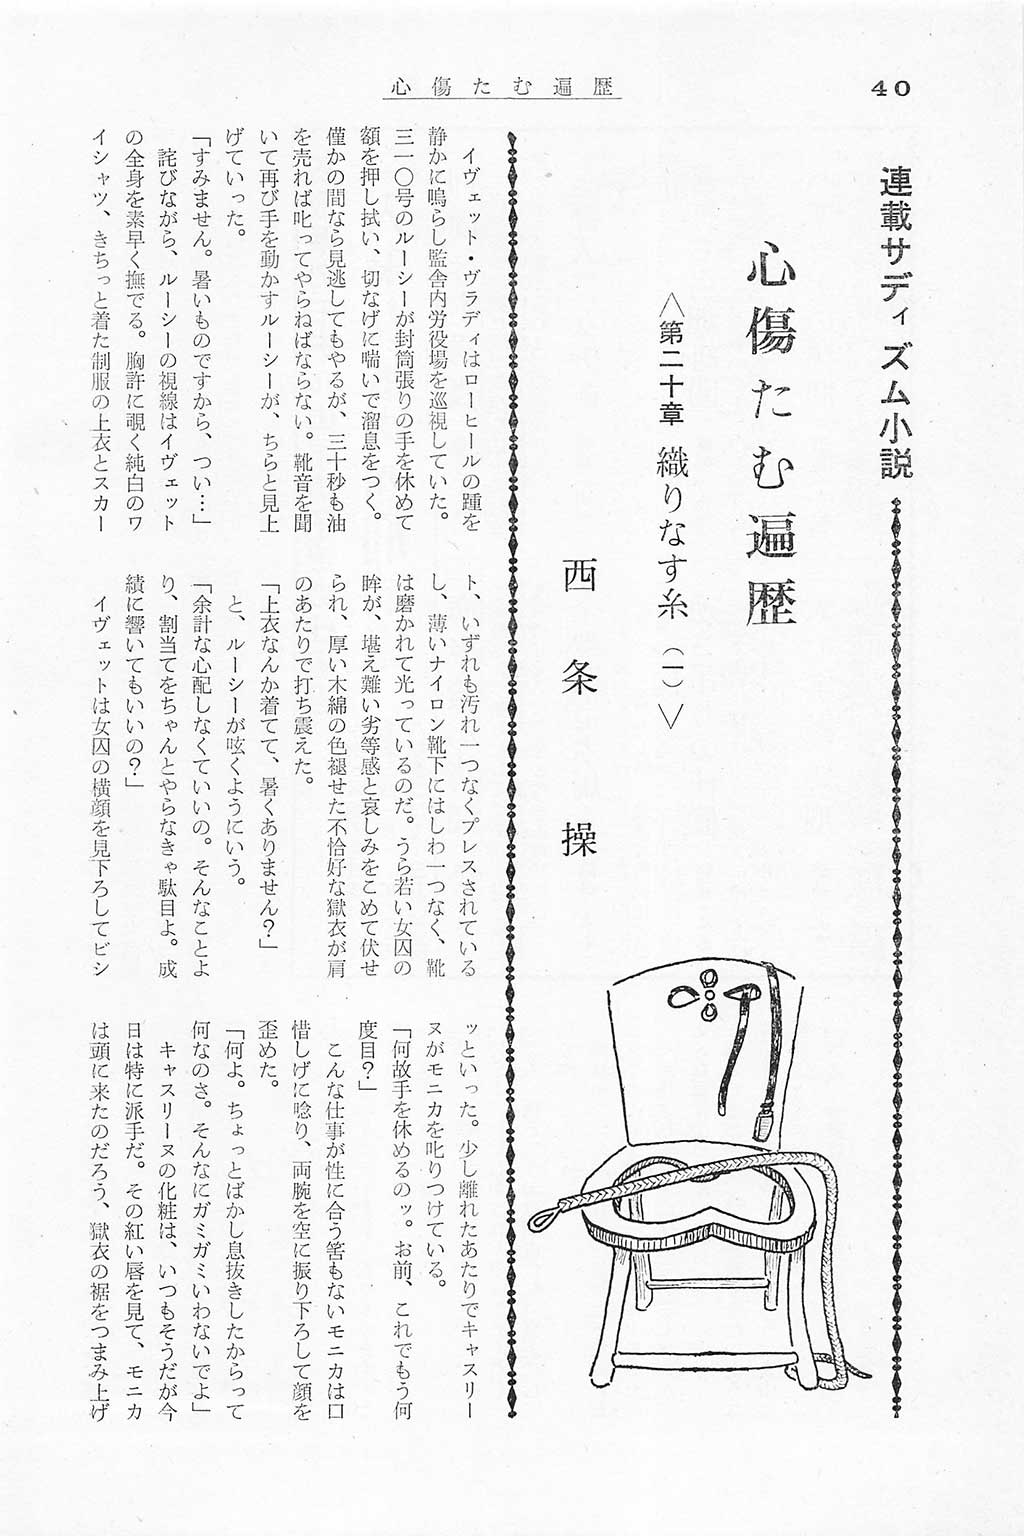 心傷たむ遍歴
40
連載サディズム小説
心傷たむ遍歴
＜第二十章 織りなす糸（一）＞
西条操
イヴェット・ヴラディはローヒールの踵を
静かに鳴らし監舎内労役場を巡視していた。
三一〇号のルーシーが封筒張りの手を休めて
額を押し拭い、切なげに喘いで溜息をつく。
僅かの間なら見逃してもやるが、三十秒も油
を売れば叱ってやらねばならない。靴音を聞
いて再び手を動かすルーシーが、ちらと見上
げていった。
「すみません。暑いものですから、つい…」
詫びながら、ルーシーの視線はイヴェット
の全身を素早く撫でる。胸許に覗く純白のワ
イシャツ、きちっと着た制服の上衣とスカー
ト、いずれも汚れ一つなくプレスされている
し、薄いナイロン靴下にはしわ一つなく、靴
は磨かれて光っているのだ。うら若い女囚の
眸が、堪え難い劣等感と哀しみをこめて伏せ
られ、厚い木綿の色褪せた不恰好な獄衣が肩
のあたりで打ち震えた。
「上衣なんか着てて、暑くありません？」
と、ルーシーが呟くようにいう。
「余計な心配しなくていいの。そんなことよ
り、割当てをちゃんとやらなきゃ駄目よ。成
績に響いてもいいの？」
イヴェットは女囚の横顔を見下ろしてビシ
ッといった。少し離れたあたりでキャスリー
ヌがモニカを叱りつけている。
「何故手を休めるのッ。お前、これでもう何
度目？」
こんな仕事が性に合う筈もないモニカは口
惜しげに唸り、両腕を空に振り下ろして顔を
歪めた。
「何よ。ちょっとばかし息抜きしたからって
何なのさ。そんなにガミガミいわないでよ」
キャスリーヌの化粧は、いつもそうだが今
日は特に派手だ。その紅い唇を見て、モニカ
は頭に来たのだろう、獄衣の裾をつまみ上げ